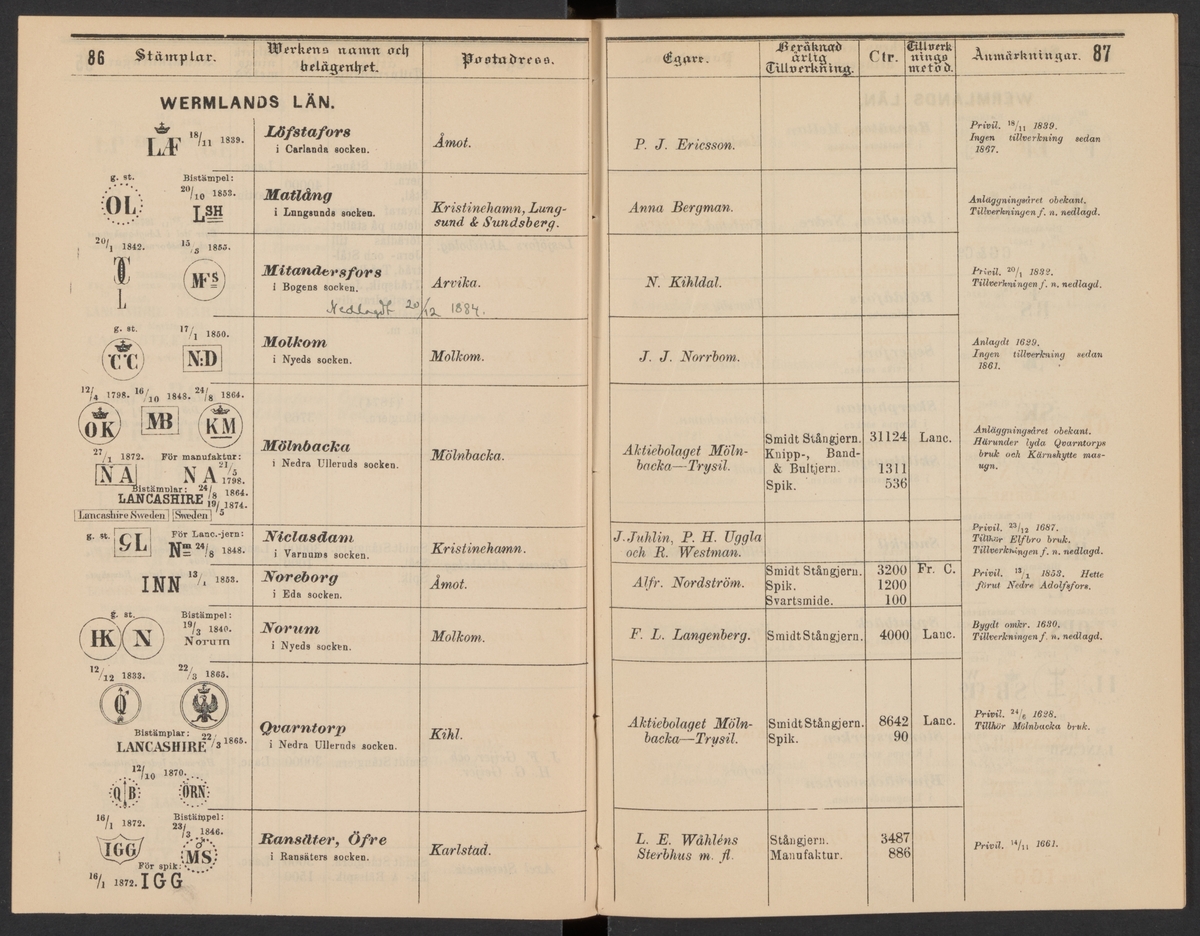 86 Stämplar. Werkens namn och belägenhet. Postadress. Egare. Beräknad årlig Tillverkning. Ctr. Tillverknings metod. Anmärkningar. 87
WERMLANDS LÄN.
LÆF 18/11 1839.
Löfstafors
i Carlanda socken.
Åmot.
P. J. Ericsson.
Privil. 18/11 1839.
Ingen tillverkning sedan
1867.
g. st. Bistämpel:
20/10 1853.
OL LSH
Matlång
i Lungsunds socken.
Kristinehamn, Lung-
sund & Sundsberg.
Anna Bergman.
Anläggningsåret obekant.
Tillverkningen f. n. nedlagd.
20/1 1842. 15/5 1855.
L MFS
Mitandersfors
i Bogens socken.
Nedlagdt 20/12 1884.
Arvika.
N. Kihldal.
Privil. 20/1 1832.
Tillverkningen f. n. nedlagd.
g. st. 17/1 1850.
CC N:D
Molkom
i Nyeds socken.
Molkom.
J. J. Norrbom.
Anlagdt 1629.
Ingen tillverkning sedan
1861.
12/4 1798. 16/10 1848. 24/8 1864.
OK MB KM
27/1 1872. För manufaktur:
NA NA 21/5 1798.
Bistämplar: 24/8 1864.
LANCASHIRE 19/5 1874.
Lancashire Sweden Sweden
Mölnbacka
i Nedra Ulleruds socken.
Mölnbacka.
Aktiebolaget Möln-
backa—Trysil.
Smidt Stångjern. 31124 Lanc.
Knipp-, Band-
& Bultjern. 1311
Spik. 536
Anläggningsåret obekant.
Härunder lyda Qvarntorps
bruk och Kärnshytte mas-
ugn.
g. st. För Lanc.-jern:
Nm 24/8 1848.
Niclasdam
i Varnums socken.
Kristinehamn.
J. Juhlin, P. H. Uggla
och R. Westman.
Privil. 23/12 1687.
Tillhör Elfbro bruk.
Tillverkningen f. n. nedlagd.
INN 13/1 1853.
Noreborg
i Eda socken.
Åmot.
Alfr. Nordström.
Smidt Stångjern. 3200 Fr. C.
Spik. 1200
Svartsmide. 100
Privil. 13/1 1853. Hette
förut Nedre Adolfsfors.
g. st. Bistämpel:
19/3 1840.
HK N Norum
Norum
i Nyeds socken.
Molkom.
F. L. Langenberg.
Smidt Stångjern. 4000 Lanc.
Bygdt omkr. 1630.
Tillverkningen f. n. nedlagd.
12/12 1833. 22/3 1865.
Q
Bistämplar: 22/3 1865.
LANCASHIRE
12/10 1870.
QB ÖRN
Qvarntorp
i Nedra Ulleruds socken.
Kihl.
Aktiebolaget Möln-
backa—Trysil.
Smidt Stångjern. 8642 Lanc.
Spik. 90
Privil. 24/6 1628.
Tillhör Mölnbacka bruk.
16/1 1872. Bistämpel:
23/3 1846.
IGG MS
För spik:
16/1 1872. IGG
Ransäter, Öfre
i Ransäters socken.
Karlstad.
L. E. Wåhléns
Sterbhus m. fl.
Stångjern. 3487
Manufaktur. 886
Privil. 14/11 1661.